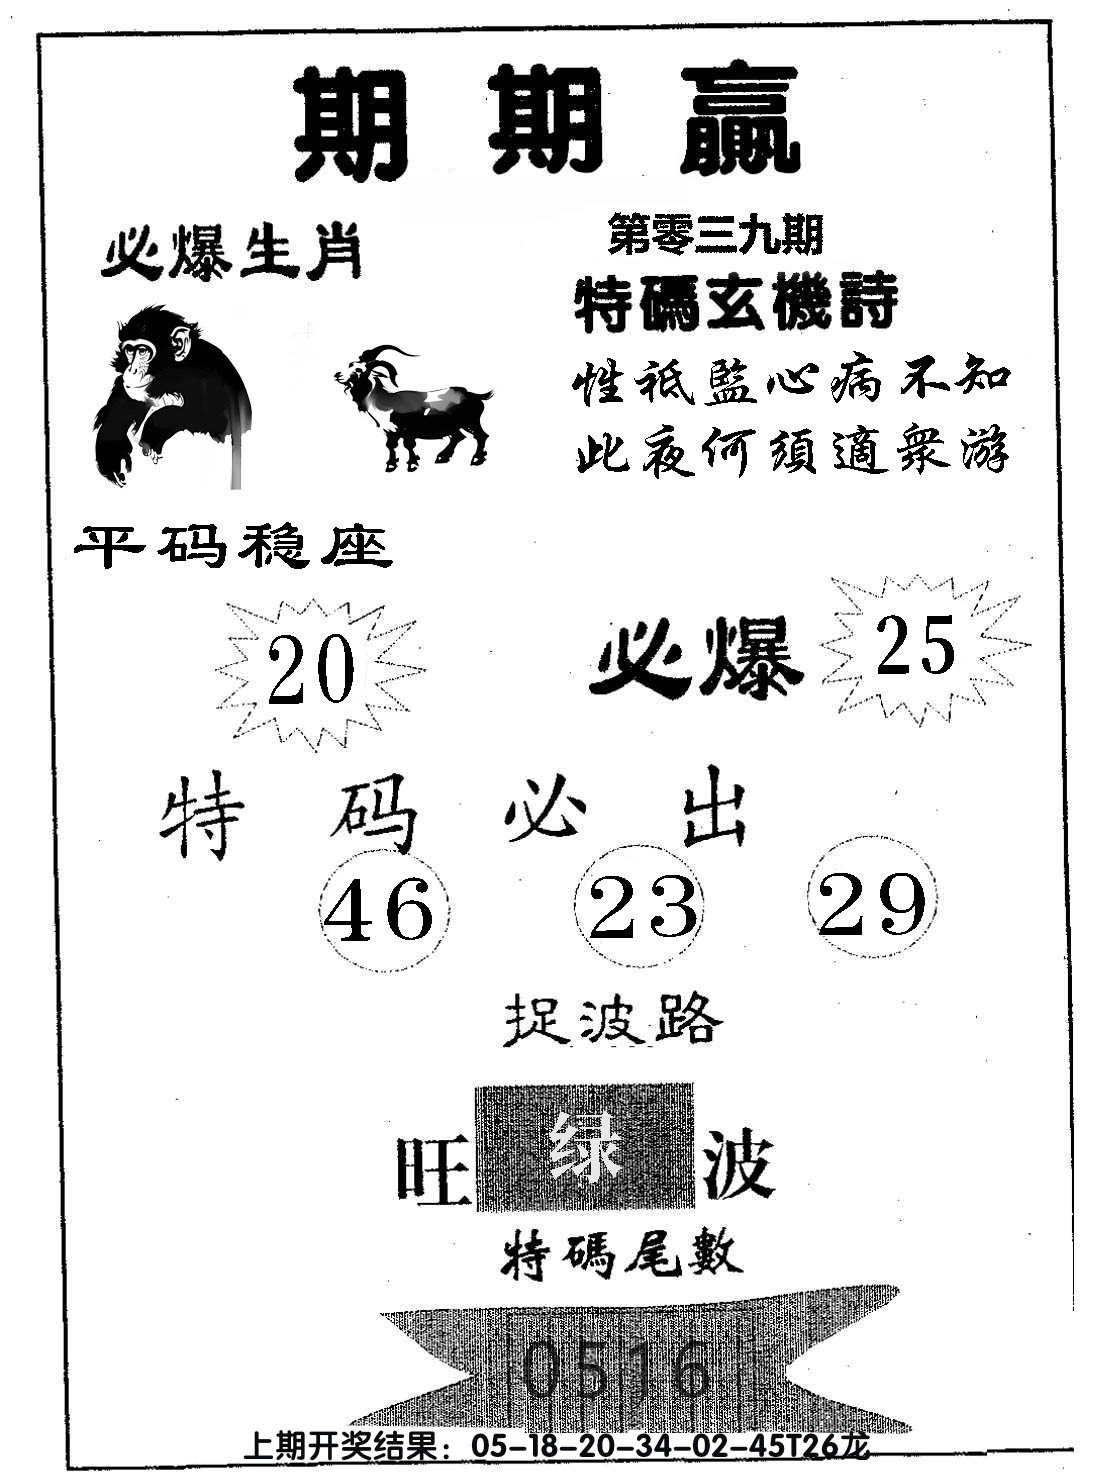 期期赢
必爆生肖
第零三九期
特碼玄機詩
性祗監心病不知
此夜何須適衆游
平码稳座
20
必爆 25
特码必出
46 23 29
捉波路
旺 绿 波
特碼尾數
0516
上期开奖结果：05-18-20-34-02-45T26龙